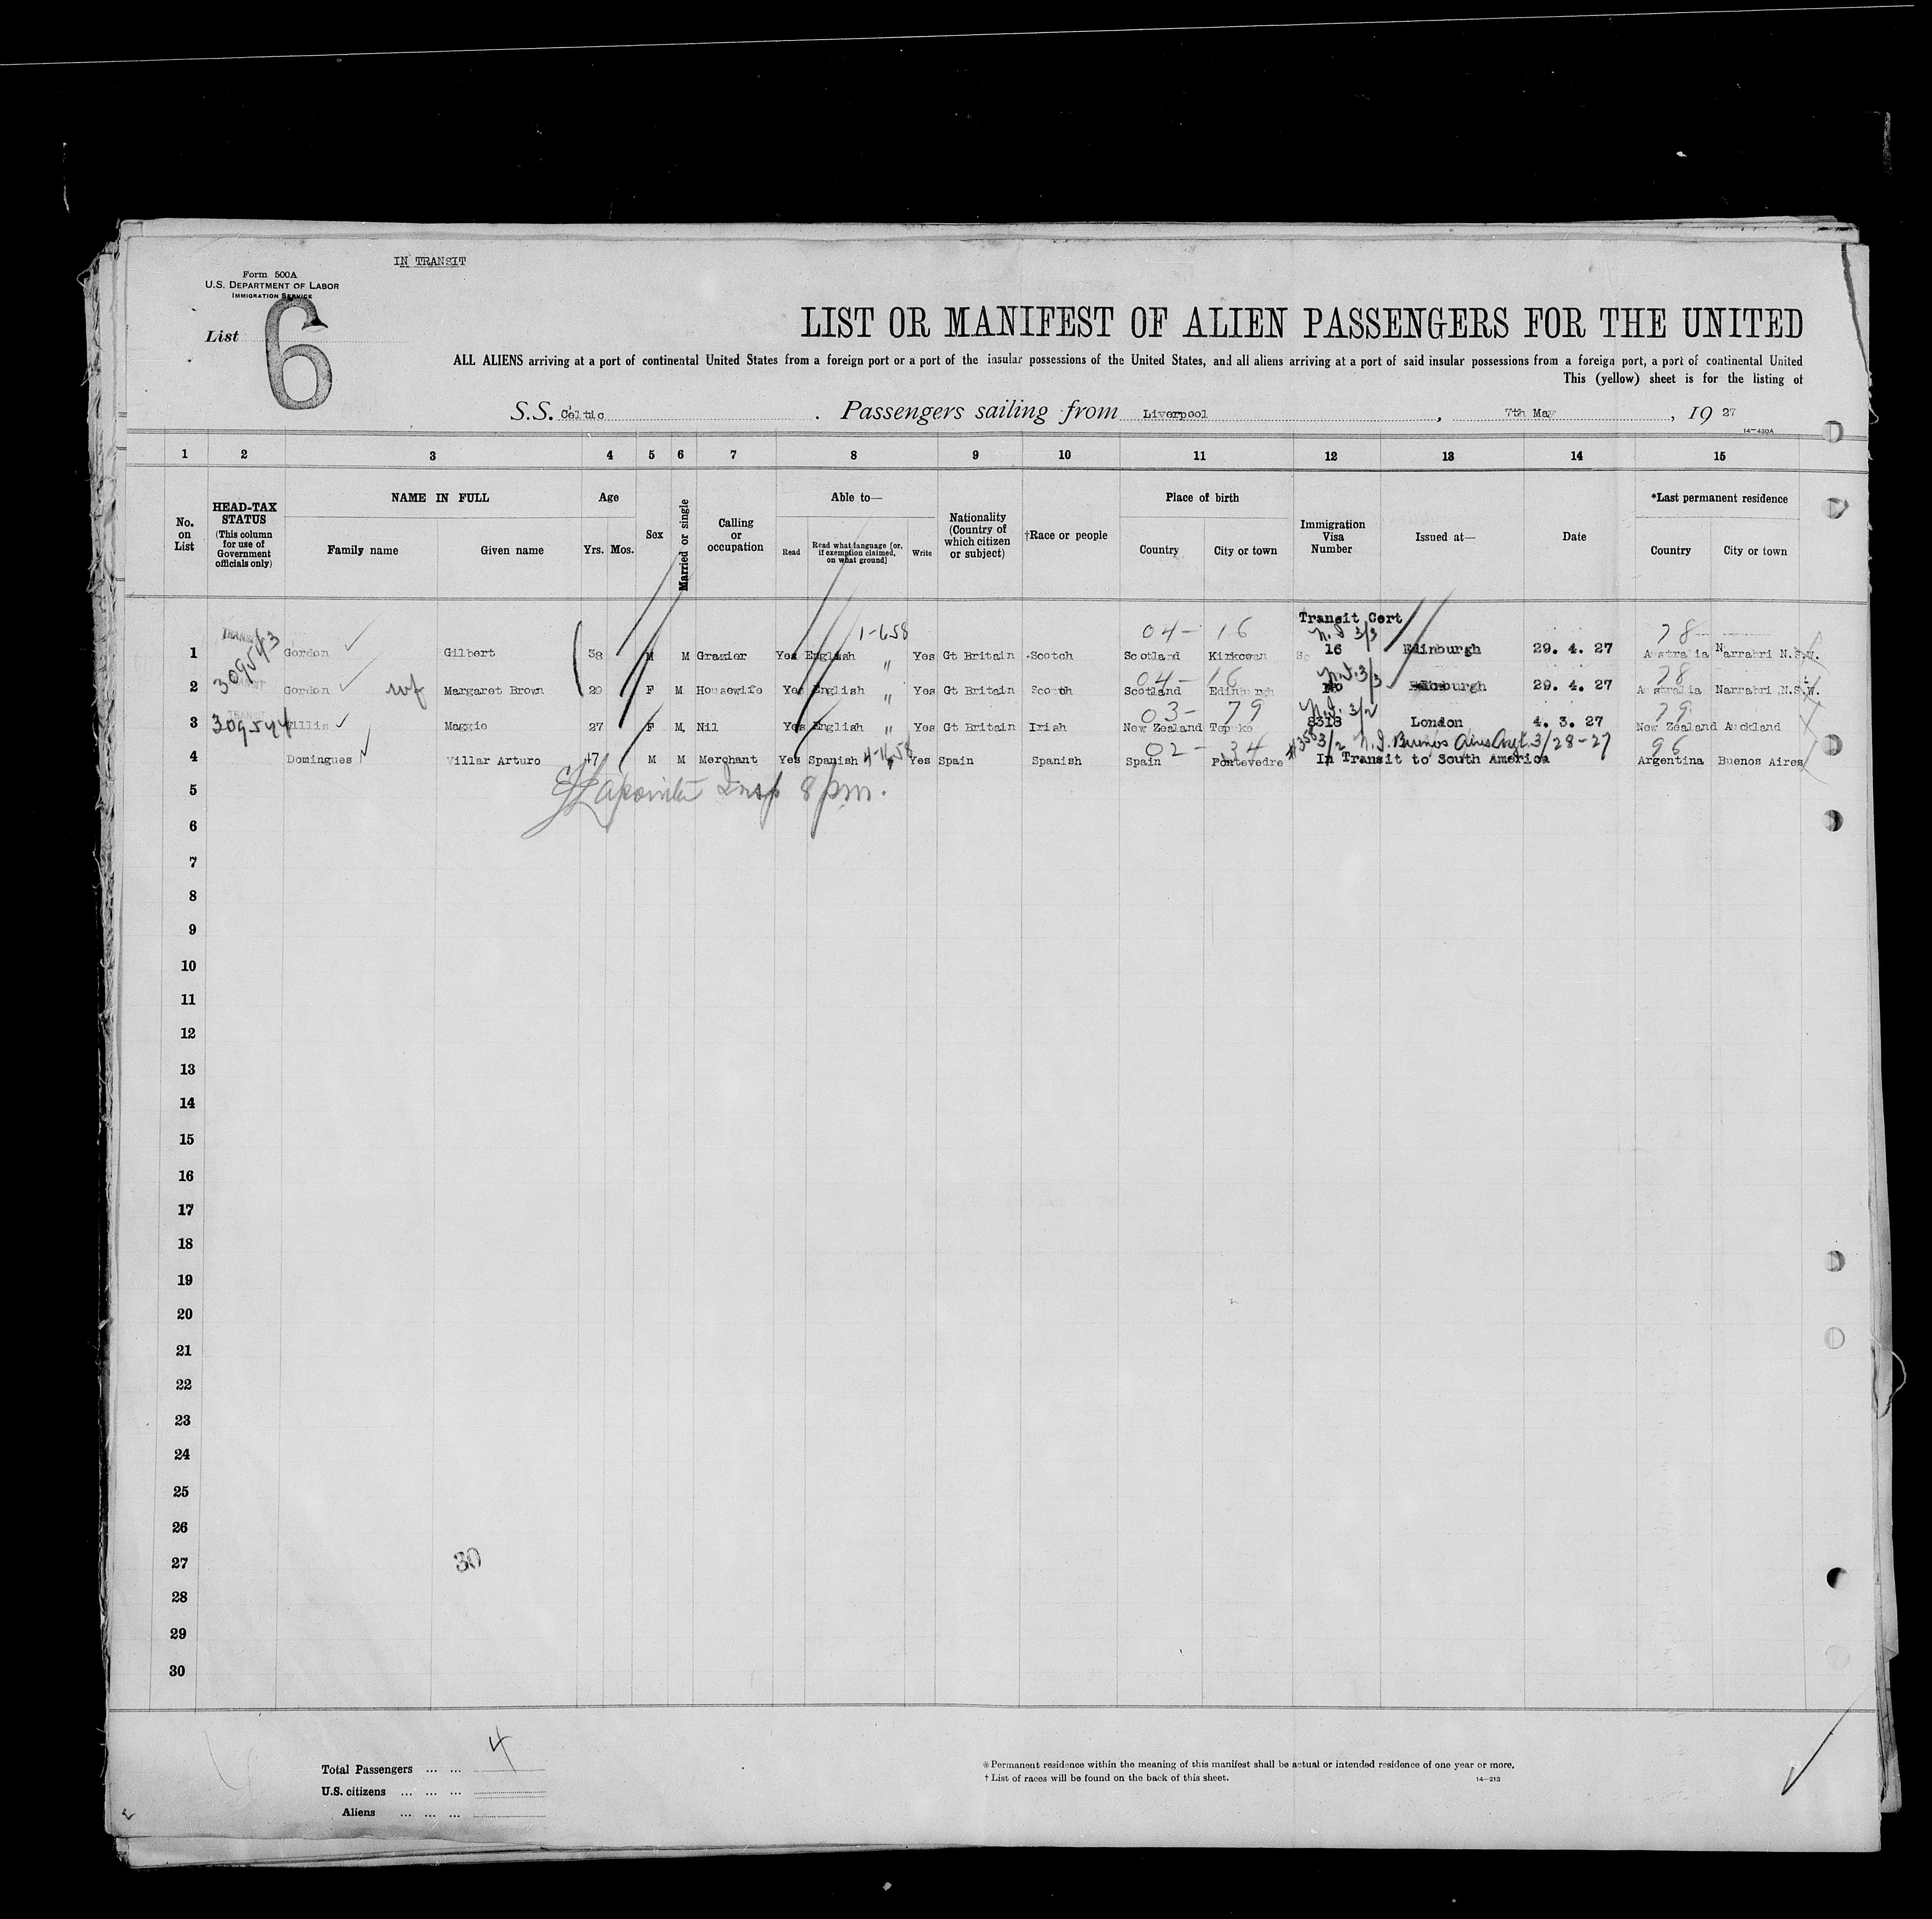 IN TRANSIT
Form 500A
U.S. DEPARTMENT OF LABOR
IMMIGRATION SERVICE
List 6
LIST OR MANIFEST OF ALIEN PASSENGERS FOR THE UNITED
ALL ALIENS arriving at a port of continental United States from a foreign port or a port of the insular possessions of the United States, and all aliens arriving at a port of said insular possessions from a foreign port, a port of continental United
This (yellow) sheet is for the listing of
S.S. Celtic . Passengers sailing from Liverpool , 7th May , 19 27
14—430A
1 2 3 4 5 6 7 8 9 10 11 12 13 14 15
No. on List
HEAD-TAX STATUS (This column for use of Government officials only)
NAME IN FULL
Family name Given name
Age
Yrs. Mos.
Sex
Married or single
Calling or occupation
Able to—
Read
Read what language [or, if exemption claimed, on what ground]
Write
Nationality (Country of which citizen or subject)
†Race or people
Place of birth
Country City or town
Immigration Visa Number
Issued at—
Date
*Last permanent residence
Country City or town
Transit Cert
1-658 04- 16 N.I 3/3 78
1 309543 Gordon Gilbert 38 M M Grazier Yes English " Yes Gt Britain Scotch Scotland Kirkcowan 16 Edinburgh 29. 4. 27 Australia Narrabri N.S.W.
04-16 N.I.3/3 78
2 Gordon wf Margaret Brown 29 F M Housewife Yes English " Yes Gt Britain Scotch Scotland Edinburgh Edinburgh 29. 4. 27 Australia Narrabri N.S.W.
03- 79 N.I. 3/2 79
3 309544 Willis Maggie 27 F M Nil Yes English " Yes Gt Britain Irish New Zealand Tepuke 8318 London 4. 3. 27 New Zealand Auckland
02- 34 #358 3/2 N.I. Buenos Aires Argt. 3/28-27 96
4 Domingues Villar Arturo 47 M M Merchant Yes Spanish Yes Spain Spanish Spain Pontevedre In Transit to South America Argentina Buenos Aires
5 Lapointe Insp 8 pm.
6
7
8
9
10
11
12
13
14
15
16
17
18
19
20
21
22
23
24
25
26
27 30
28
29
30
Total Passengers ... ... 4
U.S. citizens ... ... ...
Aliens ... ... ...
*Permanent residence within the meaning of this manifest shall be actual or intended residence of one year or more.
†List of races will be found on the back of this sheet. 14—213